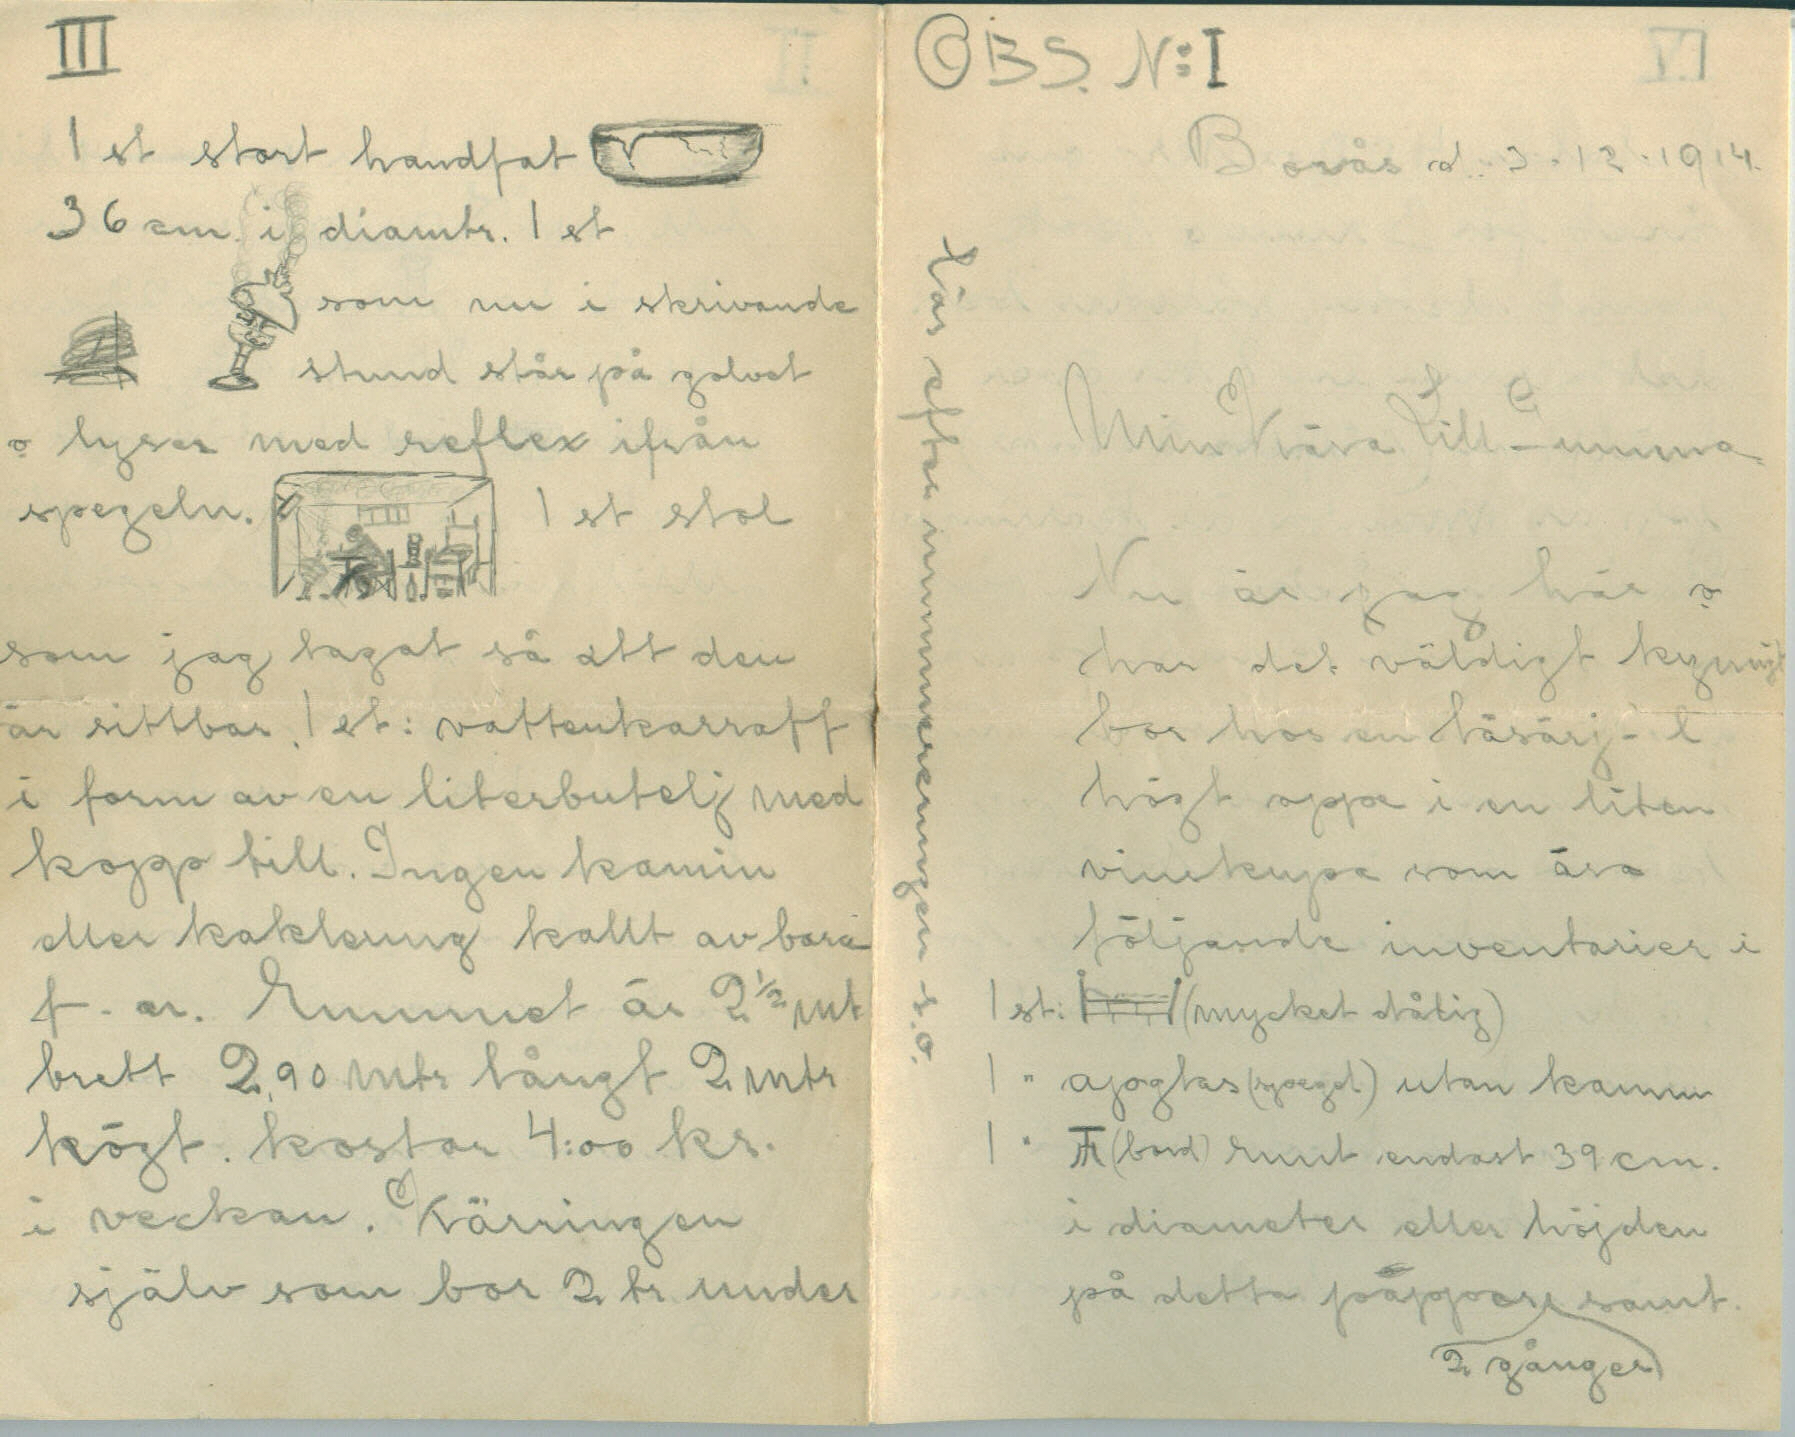 OBS. N:I
Borås d. 3.12.1914.
Läs efter nummrerinngen s.o.
Min Kära Lill-Gumma
Nu är jag här o
har det väldigt kymigt
bor hos en
högt oppe i en liten
vinskupa som äro
följande inventarier i
1 st: (mycket dålig)
1 " apoglas (spegel) utan kamm
1 " (bord) runt endast 39 cm.
i diameter eller höjden
på detta papper samt.
2 gånger
III
1 st stort handfat
36 cm. i diamtr. 1 st
som nu i skrivande
stund står på golvet
o lyser med reflex ifrån
spegeln. 1 st stol
som jag lagat så att den
är sittbar. 1 st: vattenkarraff
i form av en literbutelj med
kopp till. Ingen kamin
eller kakleung kallt av bara
f-n. Rummet är 2 1/2 mt
brett 2,90 mtr långt 2 mtr
högt. kostar 4:00 kr.
i veckan. Kärringen
själv som bor 2 tr under